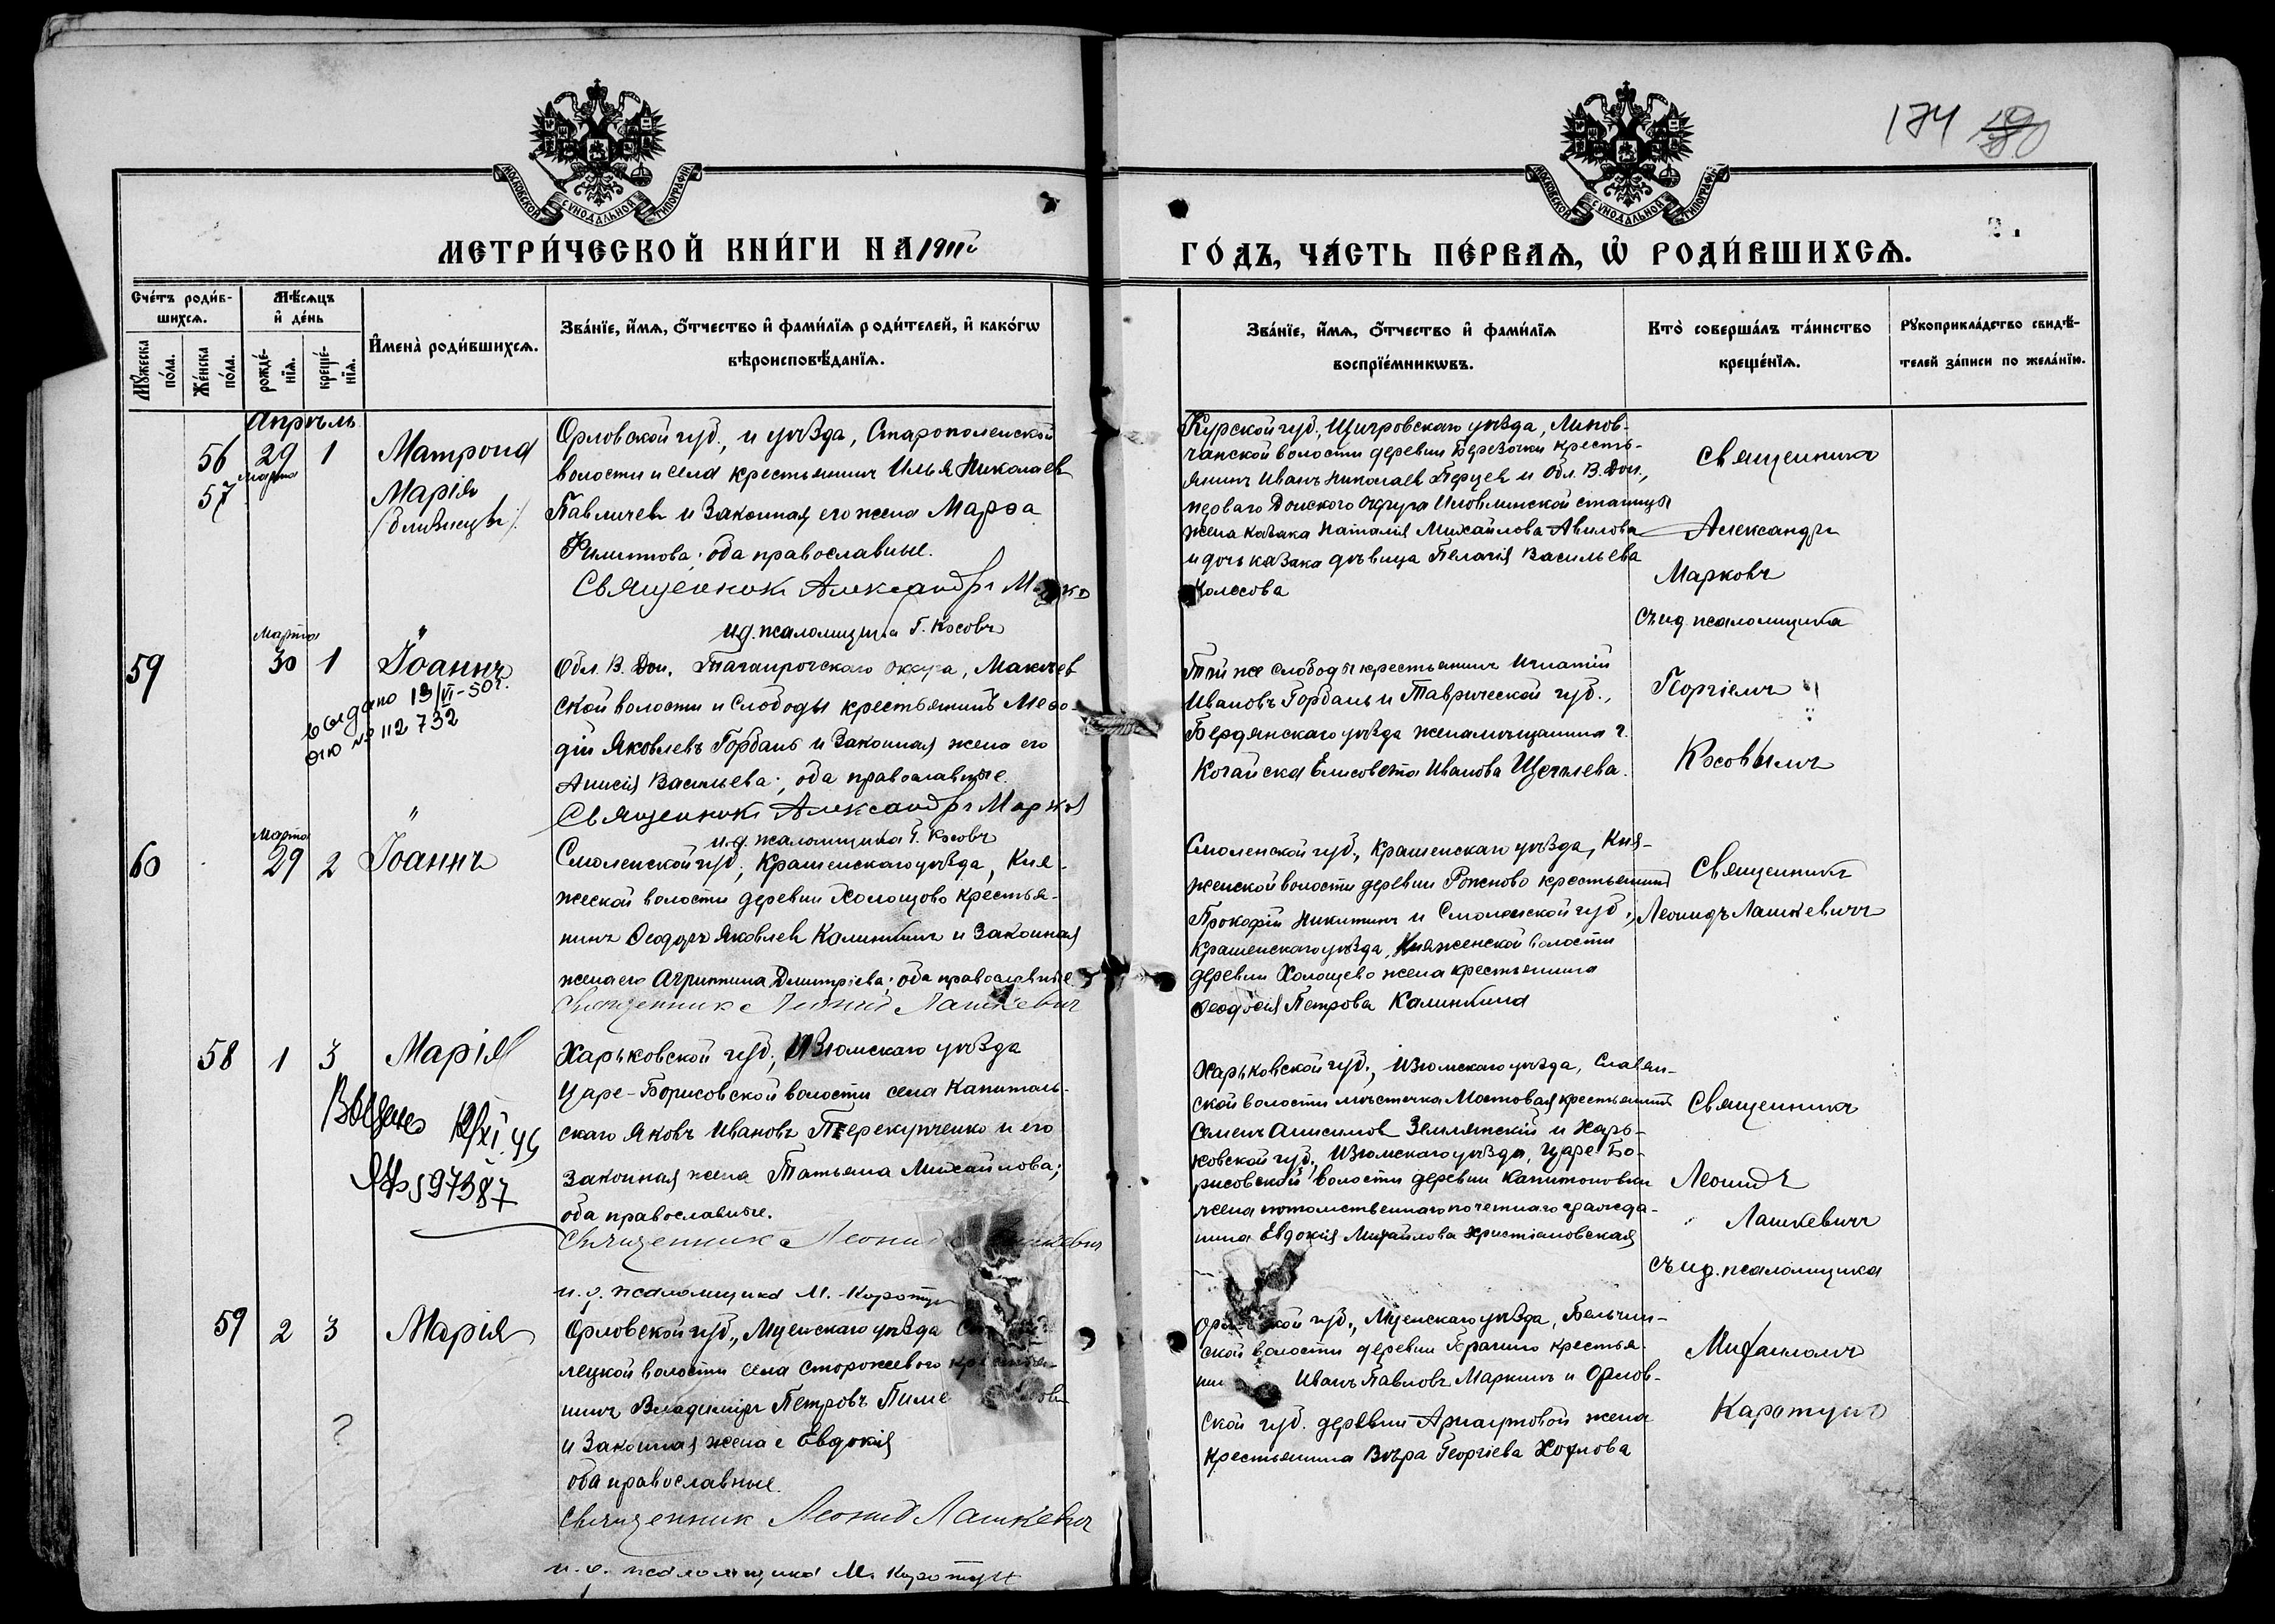 174
МОСКОВСКОЙ СѴНОДАЛЬНОЙ ТИПОГРАФІИ
МОСКОВСКОЙ СѴНОДАЛЬНОЙ ТИПОГРАФІИ
МЕТРИ́ЧЕСКОЙ КНИ́ГИ НА 1911й
ГО́ДЪ, ЧА́СТЬ ПЕ́РВАЯ, Ѡ РОДИ́ВШИХСЯ.
Сче́тъ роди́вшихся.
Мꙋ́жеска по́ла.
Же́нска по́ла.
Мѣ́сяцъ и де́нь
рожде́нїя.
креще́нїя.
И҆мена̀ роди́вшихся.
Зва́нїе, и҆́мя, ѻ҆́тчество и҆ фами́лїя роди́телей, и҆ како́гѡ
вѣроисповѣ́данїя.
Зва́нїе, и҆́мя, ѻ҆́тчество и҆ фами́лїя
воспрїе́мникѡвъ.
Кто̀ соверша́лъ та́инство
креще́нїя.
Рꙋкоприкла́дство свидѣ́-
телей за́писи по жела́нїю.
Апрѣль
56
57
29
марта
1
Матрона
Марія
/близнецы/.
Орловской губ., и уѣзда, Старопо́ленской
волости и села крестьянинъ Илья Николаев
Павличев и законная его жена Марѳа
Филиппова; оба православные.
Священник Александръ
и.д. псаломщика Г. Косовъ
Курской губ., Щигровскаго уѣзда, Липов-
чанской волости деревни Березовки кресть-
янинъ Иванъ Николаев Перцев и Обл. В. Дон.,
перваго Донского округа Иловлинской станицы
жена казака Наталія Михайлова Авилова
и дочь казака дѣвица Пелагія Васильева
Священникъ
Александръ
Марковъ
съ и.д. псаломщика
59
Марта
30
1
Іоаннъ
выдано 13/VI-50г.
№ 112 732
Обл. В. Дон. Таганрогскаго округа, Макеев
ской волости и слободы крестьянинъ Меѳо-
дій Яковлевъ Горбань и законная жена его
Анисія Васильева; оба православные.
Священник Александръ Марков
и.д. псаломщика Г. Косовъ
Той же слободы крестьянинъ Игнатій
Ивановъ Горбань и Таврической губ.,
Бердянскаго уѣзда жена мѣщанина г.
Ногайска Елисовета Иванова Щеглева.
Георгіемъ
Косовымъ
60
Марта
29
2
Іоаннъ
Смоленской губ., Крашенскаго уѣзда, Кня-
жеской волости деревни Холощово крестья-
нинъ Ѳеодоръ Яковлев Калинкинъ и законная
жена его Агриппина Димитріева; оба православные
Священник Леонид Лашкевич
Смоленской губ., Крашенскаго уѣзда, Кня-
женской волости деревни Рожново крестьянинъ
Прокофій Никитинъ и Смоленской губ.,
Крашенскаго уѣзда, Княженской волости
деревни Холощево жена крестьянина
Ѳеодосія Петрова Калинкина
Священникъ
Леонидъ Лашкевичъ
58
1
3
Марія
Выдано
597387
Харьковской губ., Изюмскаго уѣзда
Царе-Борисовской волости села Капиталь-
скаго Яковъ Ивановъ Перекупченко и его
законная жена Татьяна Михайлова;
оба православные.
Священник Леонид
и. о. псаломщика М. Каротун
Харьковской губ., Изюмскаго уѣзда, Славян-
ской волости мѣстечка Маяковая крестьянинъ
Семенъ Анисимов Землянскій и Харь-
ковской губ., Изюмскаго уѣзда, Царе-Бо-
рисовской волости деревни Капитоновки
жена потомственнаго почетнаго гражда-
нина Евдокія Михайлова Христіановская
Священникъ
Леонидъ
Лашкевичъ
съ и.д. псаломщика
59
2
3
Марія
?
Орловской губ., Мценскаго уѣзда
лецкой волости села Сторожевого
нинъ Владиміръ Петровъ
и законная жена е Евдокія
оба православные.
Священник Леонид Лашкевич
и. о. псаломщика М. Каротун
ской губ., Мценскаго уѣзда,
ской волости деревни крестья-
Иванъ Павловъ Маркинъ и Орлов-
ской губ. деревни жена
крестьянина Вѣра Георгіева
Михаиломъ
Каротунъ